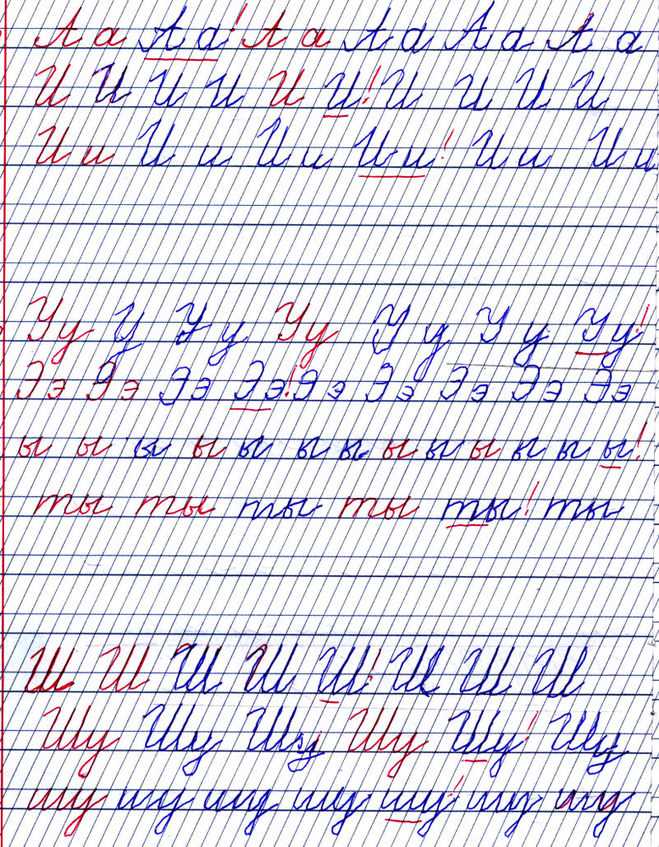 А а А а ! А а А а А а А а
И И И И И И ! И И И И
И и И и И и И и ! И и И и
У у У У у У у У у У у У у !
Ээ Ээ Ээ Ээ ! Ээ Ээ Ээ Ээ Ээ
ы ы ы ы ы ы ы ы ы ы ы ы ы !
ты ты ты ты ты ! ты
Ш Ш Ш Ш Ш ! Ш Ш Ш
Шу Шу Шу Шу Шу ! Шу
шу шу шу шу шу ! шу шу